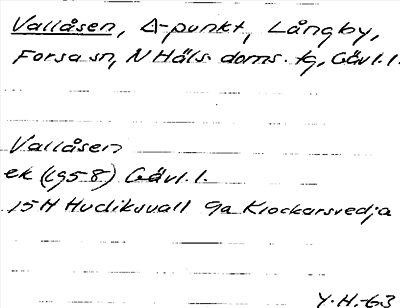 Vallåsen, △-punkt, Långby,
Forsa sn, N Häls. doms. tg, Gävl.l.
Vallåsen
ek (1958) Gävl.l.
15H Hudiksvall 9a Klockarsvedja
Y.H.-63